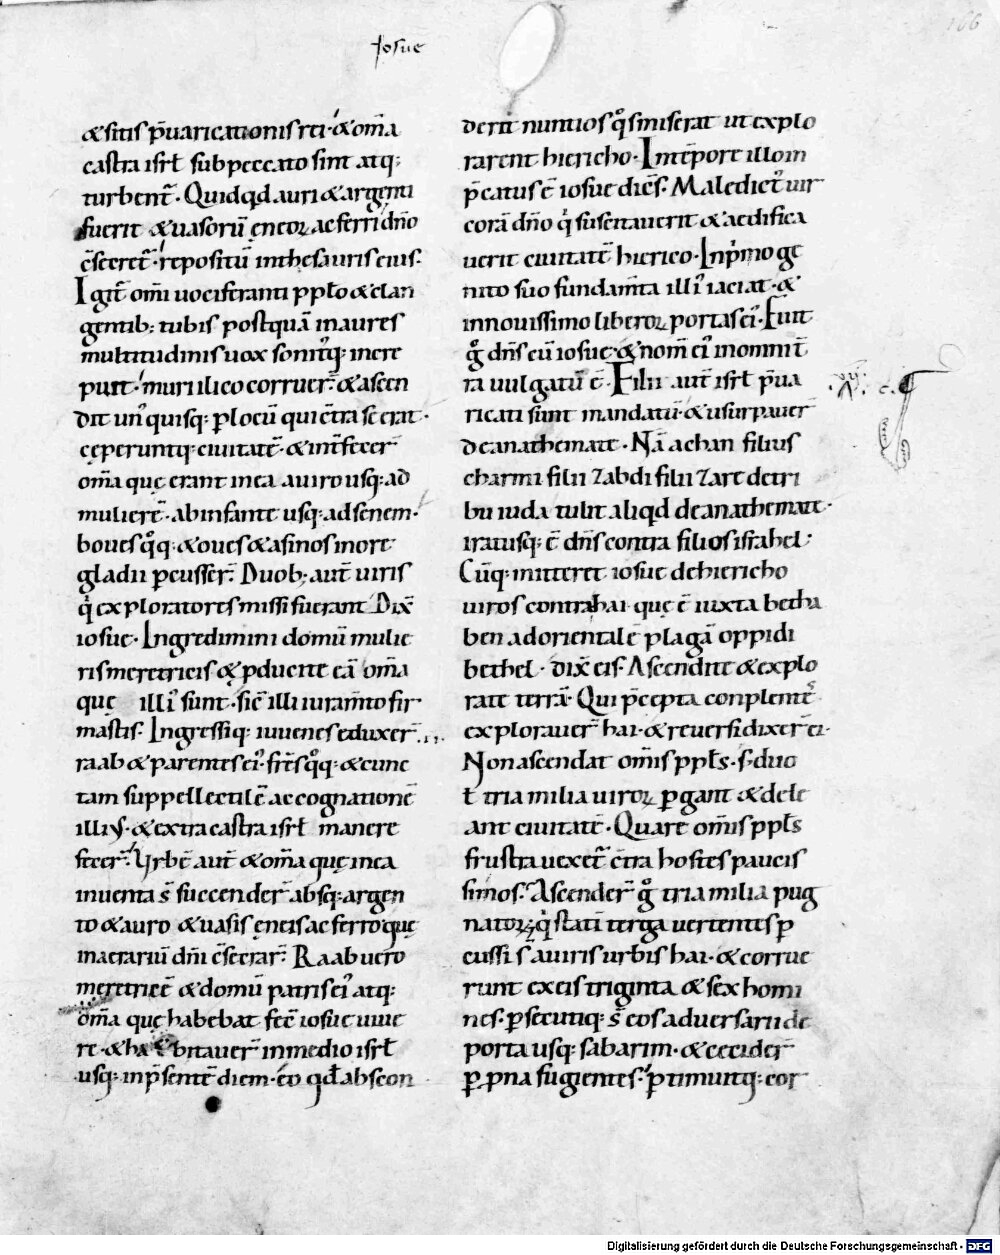 Josue
166
& sitis p̄uaricationis rei· & om̄a
castra isrł sub peccato sint atq;
turbent᷒· Quidqd auri & argenti
fuerit & uasorū ęneoꝝ ac ferri dn̄o
c̄secret᷒· repositū in thesauris eius·
Igit᷒ om̄i uociferanti ppło & clan
gentib; tubis postquā in aures
multitudinis uox sonitꝰq; incre
puit· muri ilico corruer̄ & ascen
dit unꝰquisq; ꝑ locū qui c̄tra se erat·
cęperuntq; ciuitatē· & int̄fecer̄
om̄a quę erant in ea a uiro usq; ad
mulierē· ab infante usq; ad senem·
boues qͦq; & oues & asinos in ore
gladii ꝑcusser̄· Duob; aut̄ uiris
qͥ exploratores missi fuerant Dix̄
iosue· Ingredimini domū mulie
ris meretricis & ꝓducite eā om̄a
quę illiꝰ sunt· sic̄ illi iuram̄to fir
mastis· Ingressiq; iuuenes eduxer̄
raab & parentes eiꝰ· fr̄es qͦq; & cunc
tam suppellectilē ac cognationē
illiꝰ· & extra castra isrł manere
fecer̄· Urbē aut̄ & om̄a quę in ea
inuenta s̄ succender̄ absq; argen
to & auro & uasis ęneis ac ferro quę
in aerariū dn̄i c̄secrar̄· Raab uero
meretricē & domū patris eiꝰ atq;
om̄a quę habebat fec̄ iosue uiue
re· & habitauer̄ in medio isrł
usq; in p̄sentē diem· eo qđ abscon
derit nuntios qͦs miserat ut explo
rarent hiericho· In tēpore illo in
p̄catus ē iosue dicēs· Maledictꝰ uir
corā dn̄o qͥ suscitauerit & aedifica
uerit ciuitatē hierico· In pͥmo ge
nito suo fundam̄ta illiꝰ iaciat· &
in nouissimo liberoꝝ portas eiꝰ· Fuit
gͦ dn̄s cū iosue· & nom̄ eiꝰ in omni t̄
ra uulgatū ē· Filii aut̄ isrł p̄ua
ricati sunt mandatū· & usurpauer̄
de anathemate· Nā achan filius
charmi filii zabdi filii zare de tri
bu iuda tulit aliqd de anathemate·
iratusq; ē dn̄s contra filios israhel·
Cūq; mitteret iosue de hiericho
uiros contra hai quę ē iuxta betha
ben ad orientalē plagā oppidi
bethel· dix̄ eis· Ascendite & explo
rate terrā· Qui p̄cepta conplentes
explorauer̄ hai· & reuersi dixer̄ ei·
Non ascendat om̄is pplꝰs· s; duo
ł tria milia uiroꝝ ꝑgant & dele
ant ciuitatē· Quare om̄is ppłs
frustra uexet᷒ c̄tra hostes paucis
simos· Ascender̄ gͦ tria milia pug
natoꝝ; qͥ statī terga uertentes ꝑ
cussi s̄ a uiris urbis hai· & corrue
runt ex eis triginta & sex homi
nes· ꝑsecutiq; s̄ eos aduersarii de
porta usq; sabarim· & cecider̄
ꝑ pna fugientes· ꝑtimuitq; cor
Digitalisierung gefördert durch die Deutsche Forschungsgemeinschaft - DFG